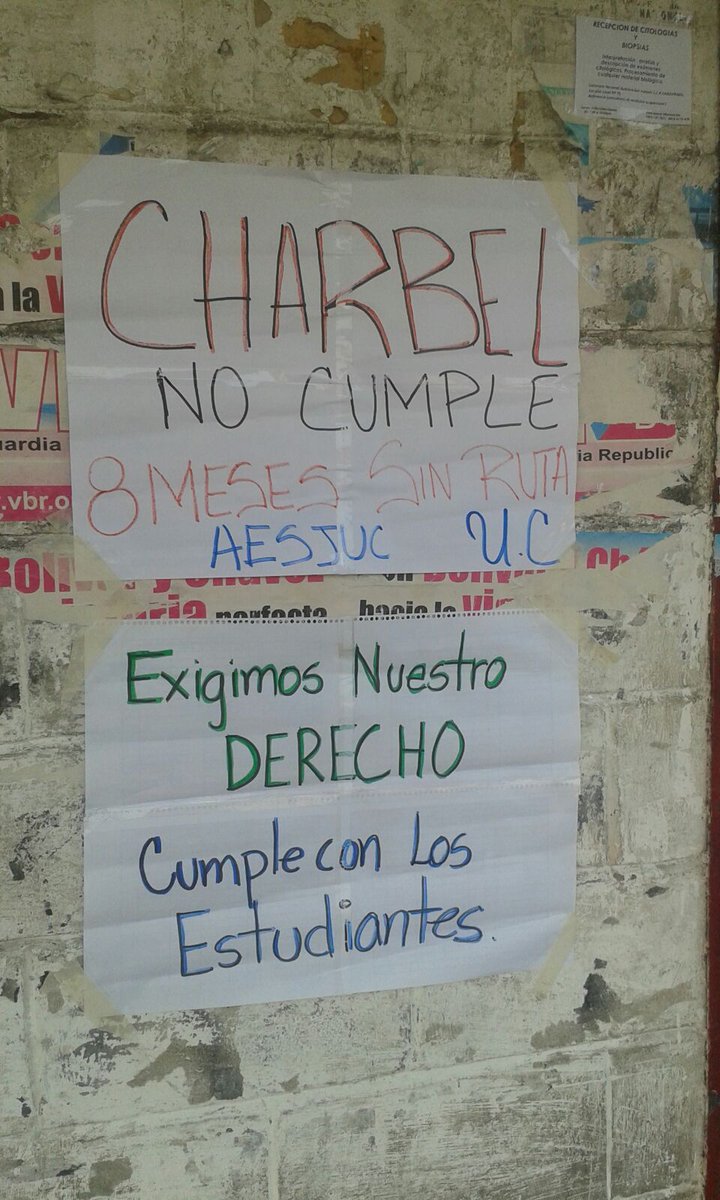 RECEPCION DE CITOLOGIAS
Y
BIOPSIAS
CHARBEL
NO CUMPLE
8 MESES SIN RUTA
AESJUC U.C
a la
uardia
ia Republic
.vbr.o
perfecta hacia la
Exigimos Nuestro
DERECHO
Cumple con Los
Estudiantes.